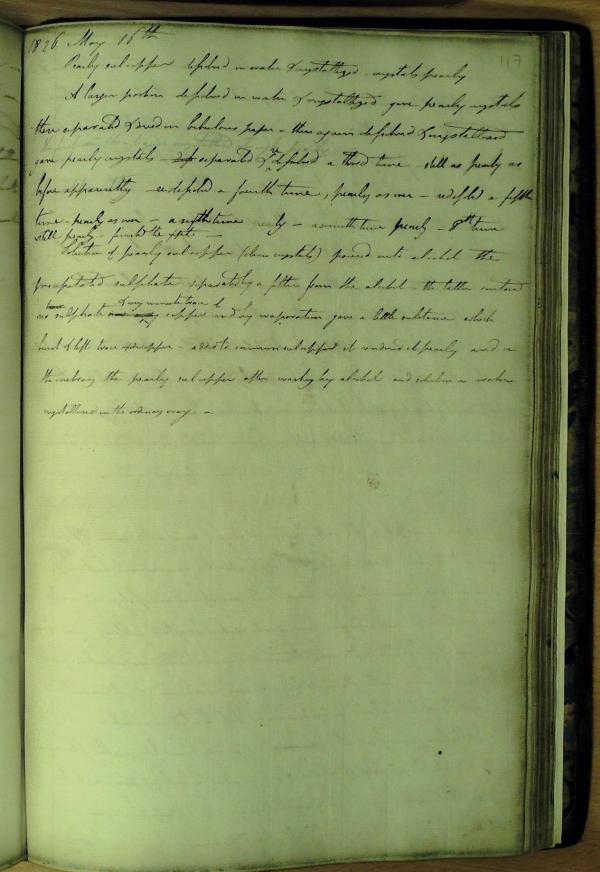 1826 May 16th
117
Pearly sul copper dissolved in water & crystallized - crystals pearly
A larger portion dissolved in water & crystallized gave pearly crystals
these separated & dried on bibulous paper & then again dissolved & crystallized
gave pearly crystals separated & dissolved a third time still as pearly as
before apparently - redissolved a fourth time, pearly as ever - redissolved a fifth
time - pearly as ever - a sixth time pearly - a seventh time pearly - 8th time
still pearly - finished the expts -
Solution of pearly sul copper (clean crystals) poured into alcohol the
precipitated sulphate separated by a filter from the alcohol - the latter contained
& very minute trace of
no sulphate copper and by evaporation gave a little substance which
burnt & left trace copper - added to common sul copper it rendered it pearly and on
the contrary the pearly sul copper after washing by alcohol and solution in water
crystallized in the ordinary way -